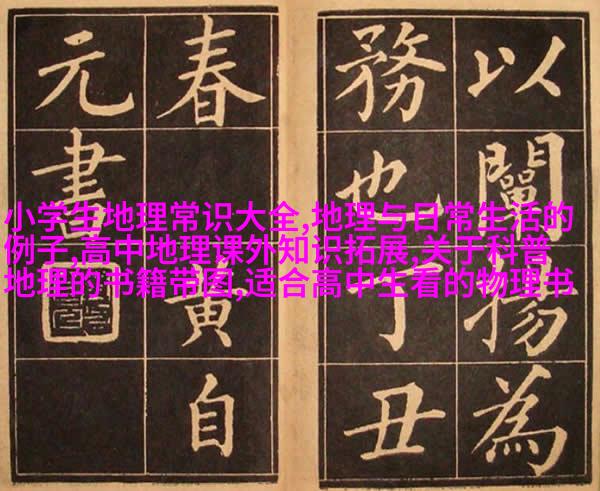 以闡揚為
務也丁丑
春黃自
元書
小学生地理常识大全,地理与日常生活的
例子,高中地理课外知识拓展,关于科普
地理的书籍带图,适合高中生看的物理书